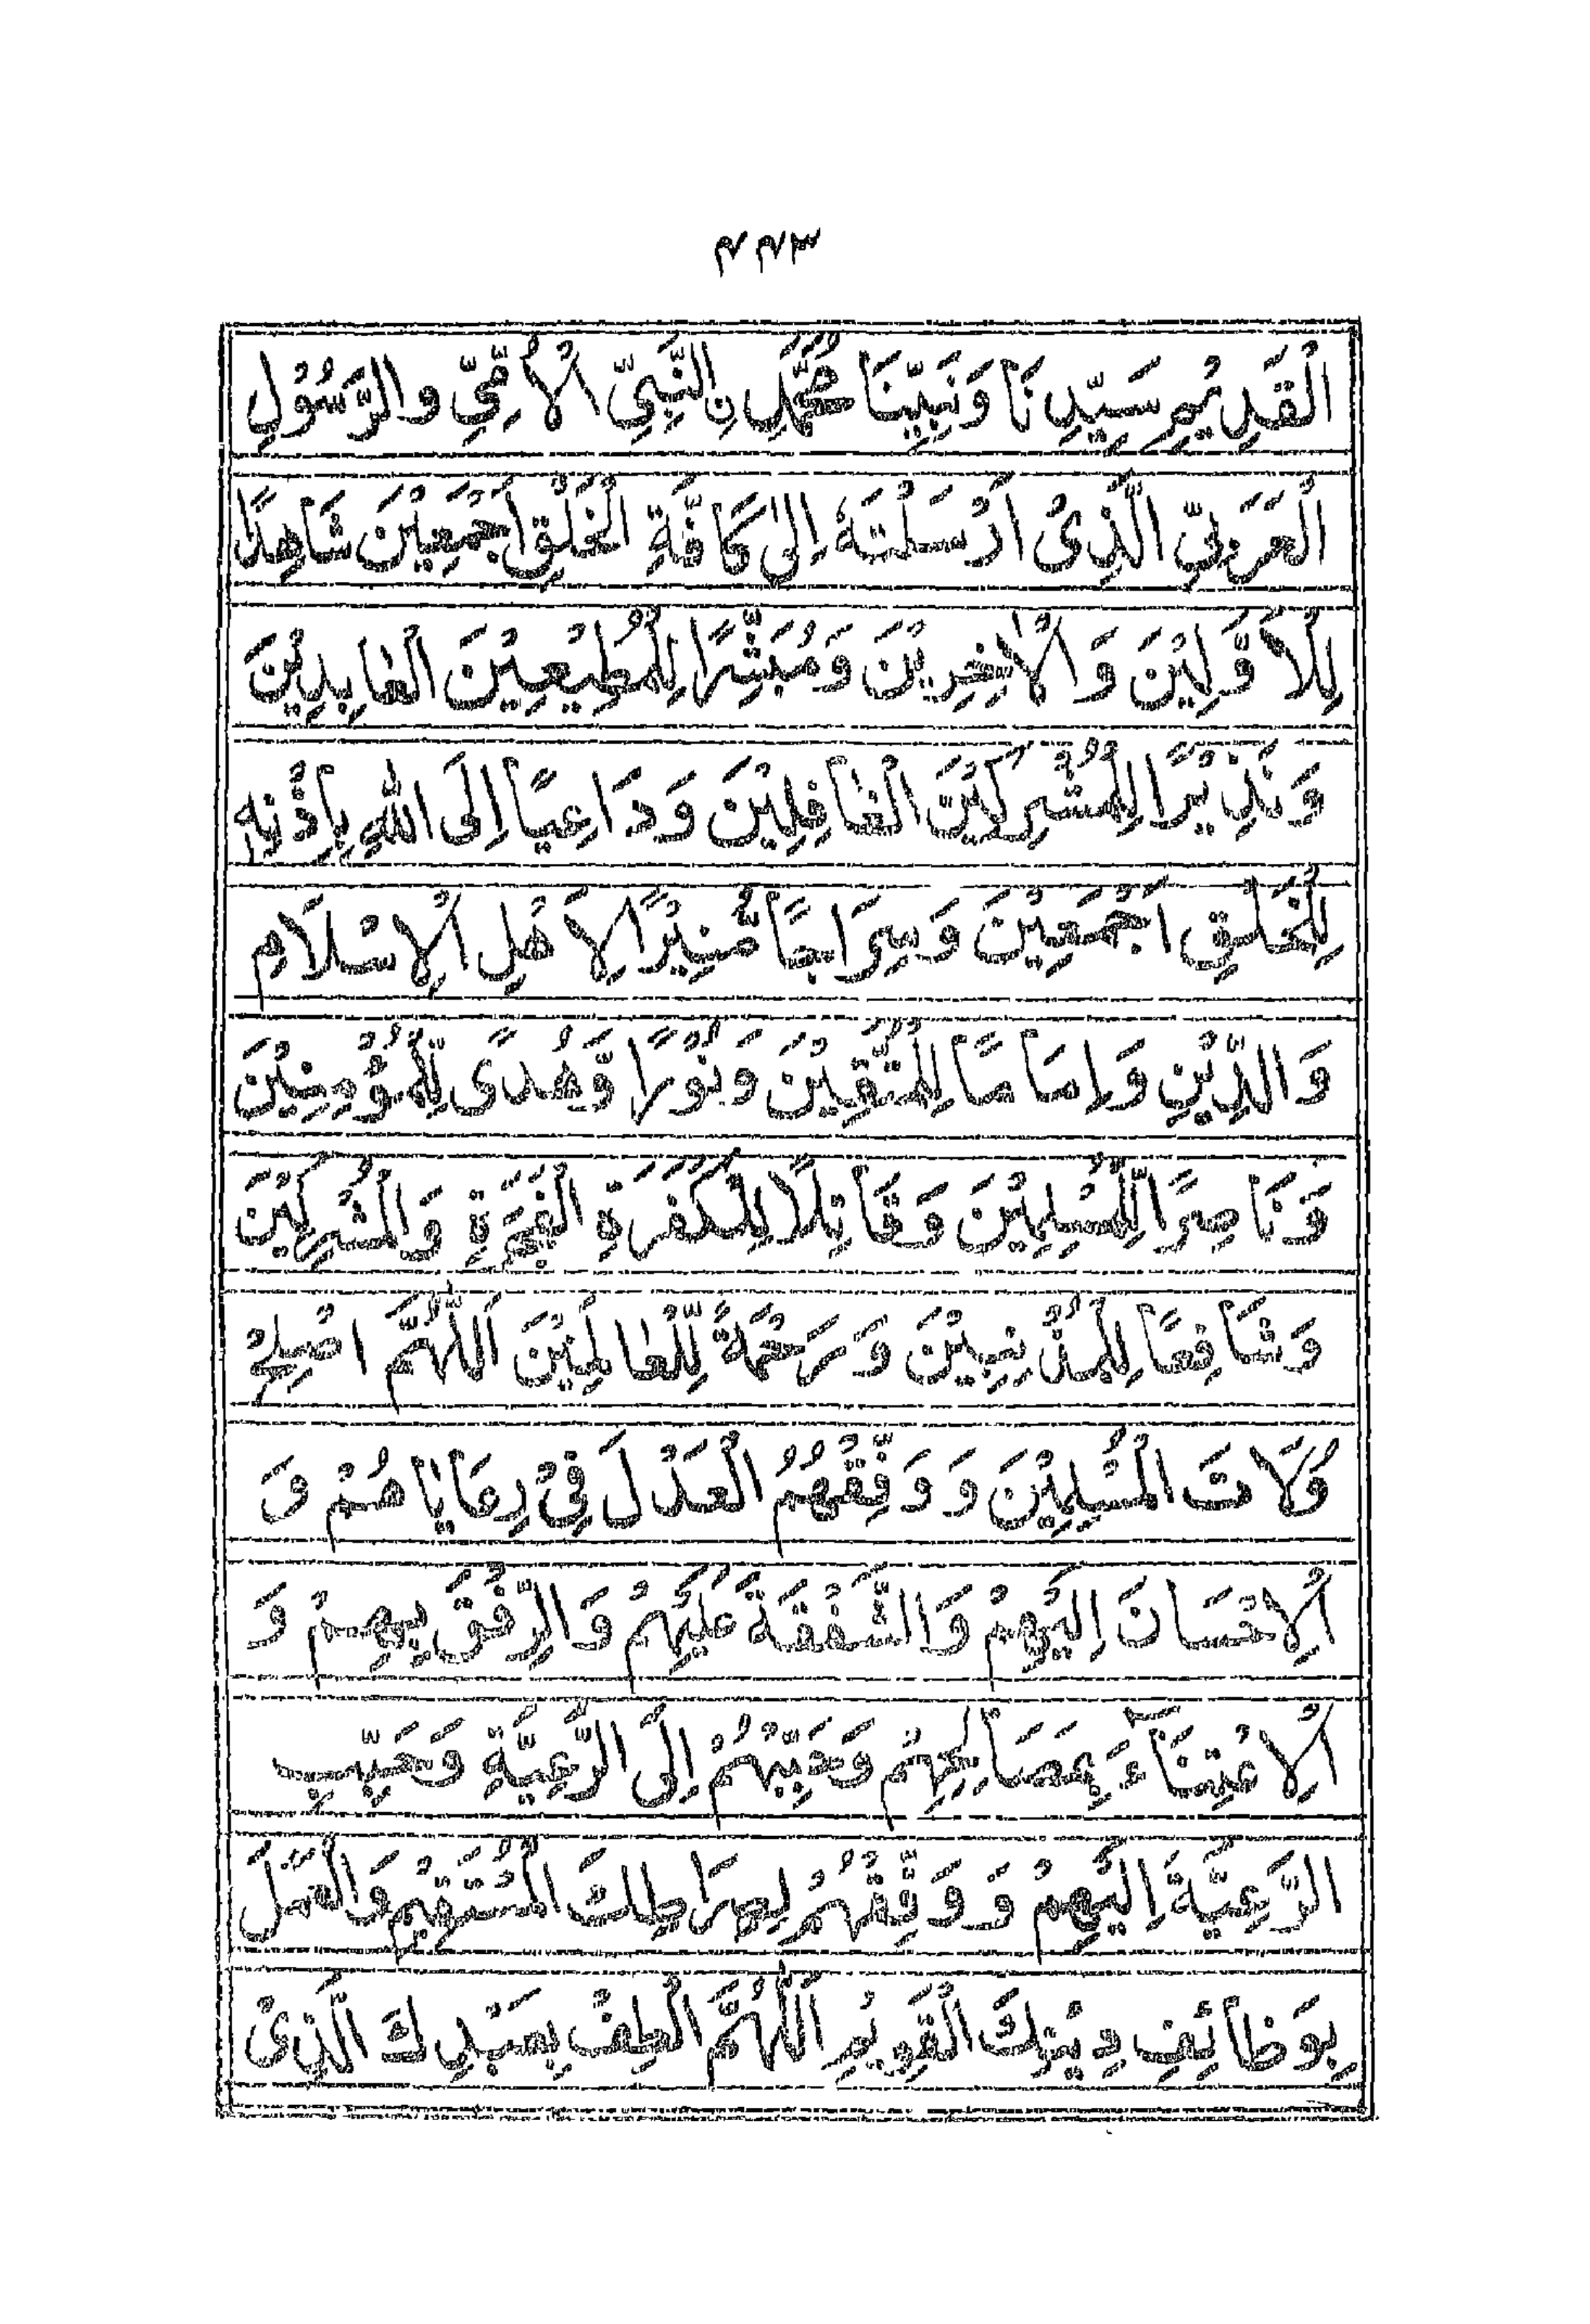 ۳۴۴
الْقَدِيْمِ سَيِّدِنَا وَنَبِيِّنَا مُحَمَّدِ نِ النَّبِيِّ الْأُمِّيِّ والرَّسُوْلِ
الْعَرَبِيِّ الَّذِىْ اَرْسَلْتَهٗ اِلىٰ كَافَّةِ الْخَلْقِ اَجْمَعِيْنَ شَاهِدًا
لِلْاَوَّلِيْنَ وَالْاٰخِرِيْنَ وَمُبَشِّرًا لِلْمُطِيْعِيْنَ الْعٰابِدِيْنَ
وَنَذِيْرًا لِلْمُشْرِكِيْنَ الْغٰافِلِيْنَ وَدَاعِيًا اِلَى اللهِ بِاِذْنِهٖ
لِلْخَلْقِ اَجْمَعِيْنَ وَسِرَاجًا مُنِيْرًا لِاَهْلِ الْاِسْلَامِ
وَالدِّيْنِ وَاِمَامًا لِلْمُتَّقِيْنَ وَنُوْرًا وَّهُدًى لِّلْمُؤْمِنِيْنَ
وَنَاصِرًا لِلْمُسْلِمِيْنَ وَقَاتِلًا لِلْكَفَرَةِ الْفَجَرَةِ وَالْمُشْرِكِيْنَ
وَشَافِعًا لِلْمُذْنِبِيْنَ وَرَحْمَةً لِّلْعٰالَمِيْنَ اَللّٰهُمَّ اصْلِحْ
وُلَاتَ الْمُسْلِمِيْنَ وَوَفِّقْهُمُ الْعَدْلَ فِىْ رِعَايٰاهُمْ وَ
الْاِحْسَانَ اِلَيْهِمْ وَالشَّفْقَةَ عَلَيْهِمْ وَالرِّفْقَ بِهِمْ وَ
الْاِعْتِنَآءَ بِمَصَالِحِهِمْ وَحَبِّبْهُمْ اِلَى الرَّعِيَّةِ وَحَبِّبِ
الرَّعِيَّةَ اِلَيْهِمْ وَ وَفِّقْهُمْ لِصِرَاطِكَ الْمُسْتَقِيْمِ وَالْعَمَلَ
بِوَظَائِفِ دِيْنِكَ الْقَوِيْمِ اَللّٰهُمَّ الْطُفْ بِعَبْدِكَ الَّذِىْ